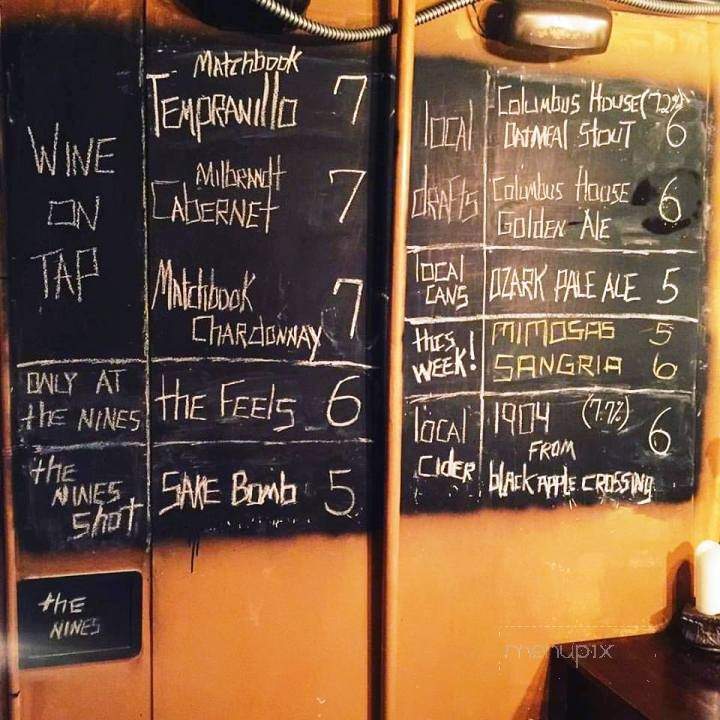 WINE
ON
TAP
Matchbook
TEMPRANIllo 7
Milbrandt
CABERNET 7
Matchbook
CHARdONNAY 7
ONLY AT
the NINES
the FEEls 6
the
NINES
Shot
SAKE BomB 5
the
NINES
local
dRAfts
Columbus House (7.2%)
OATMEAl Stout 6
Columbus House
Golden Ale 6
local
CANS
OZARK PALE ALE 5
this
WEEK!
MIMOSAS 5
SANGRIA 6
local
CidER
1904 (7.7%)
FROM
black APPlE CROSSING 6
menupix